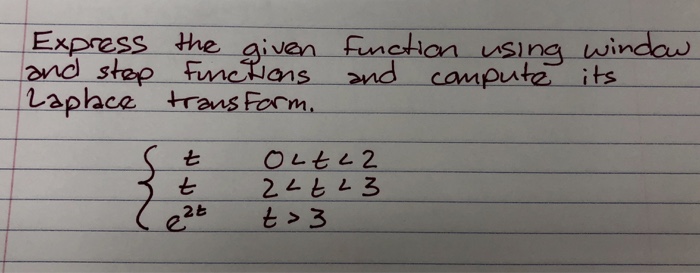 Express the given function using window
and step functions and compute its
Laplace transform.
{ t 0 < t < 2
t 2 < t < 3
e^2t t > 3